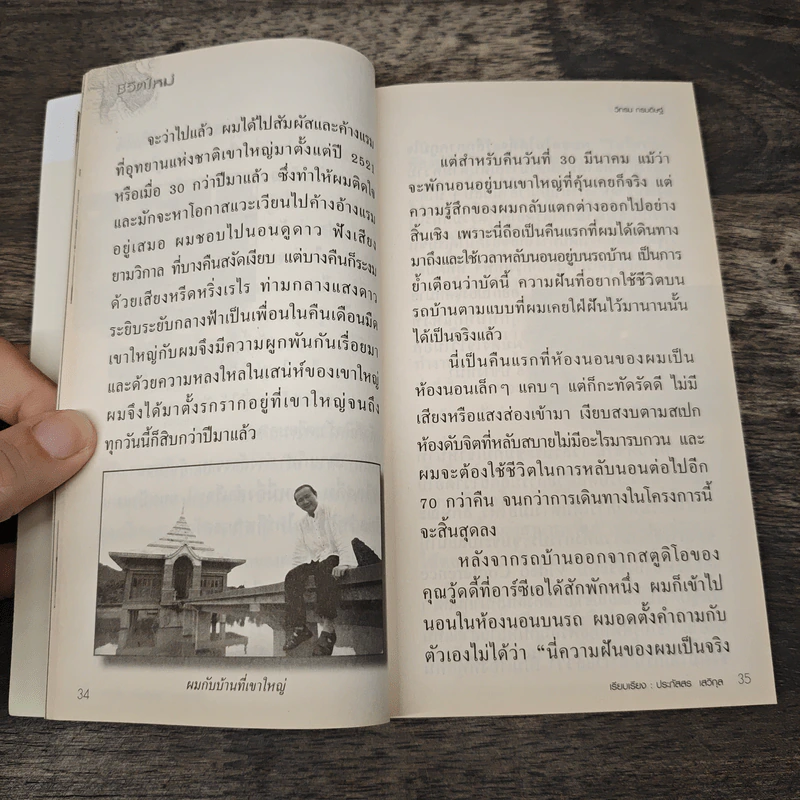 ชีวิตใหม่
จะว่าไปแล้ว ผมได้ไปสัมผัสและค้างแรม
ที่อุทยานแห่งชาติเขาใหญ่มาตั้งแต่ปี 2521
หรือเมื่อ 30 กว่าปีมาแล้ว ซึ่งทำให้ผมติดใจ
และมักจะหาโอกาสแวะเวียนไปค้างอ้างแรม
อยู่เสมอ ผมชอบไปนอนดูดาว ฟังเสียง
ยามวิกาล ที่บางคืนสงัดเงียบ แต่บางคืนก็ระงม
ด้วยเสียงหรีดหริ่งเรไร ท่ามกลางแสงดาว
ระยิบระยับกลางฟ้าเป็นเพื่อนในคืนเดือนมืด
เขาใหญ่กับผมจึงมีความผูกพันกันเรื่อยมา
และด้วยความหลงใหลในเสน่ห์ของเขาใหญ่
ผมจึงได้มาตั้งรกรากอยู่ที่เขาใหญ่จนถึง
ทุกวันนี้ก็สิบกว่าปีมาแล้ว
ผมกับบ้านที่เขาใหญ่
34
วิกรม กรมดิษฐ์
แต่สำหรับคืนวันที่ 30 มีนาคม แม้ว่า
จะพักนอนอยู่บนเขาใหญ่ที่คุ้นเคยก็จริง แต่
ความรู้สึกของผมกลับแตกต่างออกไปอย่าง
สิ้นเชิง เพราะนี่ถือเป็นคืนแรกที่ผมได้เดินทาง
มาถึงและใช้เวลาหลับนอนอยู่บนรถบ้าน เป็นการ
ย้ำเตือนว่าบัดนี้ ความฝันที่อยากใช้ชีวิตบน
รถบ้านตามแบบที่ผมเคยใฝ่ฝันไว้มานานนั้น
ได้เป็นจริงแล้ว
นี่เป็นคืนแรกที่ห้องนอนของผมเป็น
ห้องนอนเล็กๆ แคบๆ แต่ก็กะทัดรัดดี ไม่มี
เสียงหรือแสงส่องเข้ามา เงียบสงบตามสเปก
ห้องดับจิตที่หลับสบายไม่มีอะไรมารบกวน และ
ผมจะต้องใช้ชีวิตในการหลับนอนต่อไปอีก
70 กว่าคืน จนกว่าการเดินทางในโครงการนี้
จะสิ้นสุดลง
หลังจากรถบ้านออกจากสตูดิโอของ
คุณวู้ดดี้ที่อาร์ซีเอได้สักพักหนึ่ง ผมก็เข้าไป
นอนในห้องนอนบนรถ ผมอดตั้งคำถามกับ
ตัวเองไม่ได้ว่า “นี่ความฝันของผมเป็นจริง
เรียบเรียง : ประภัสสร เสวิกุล 35